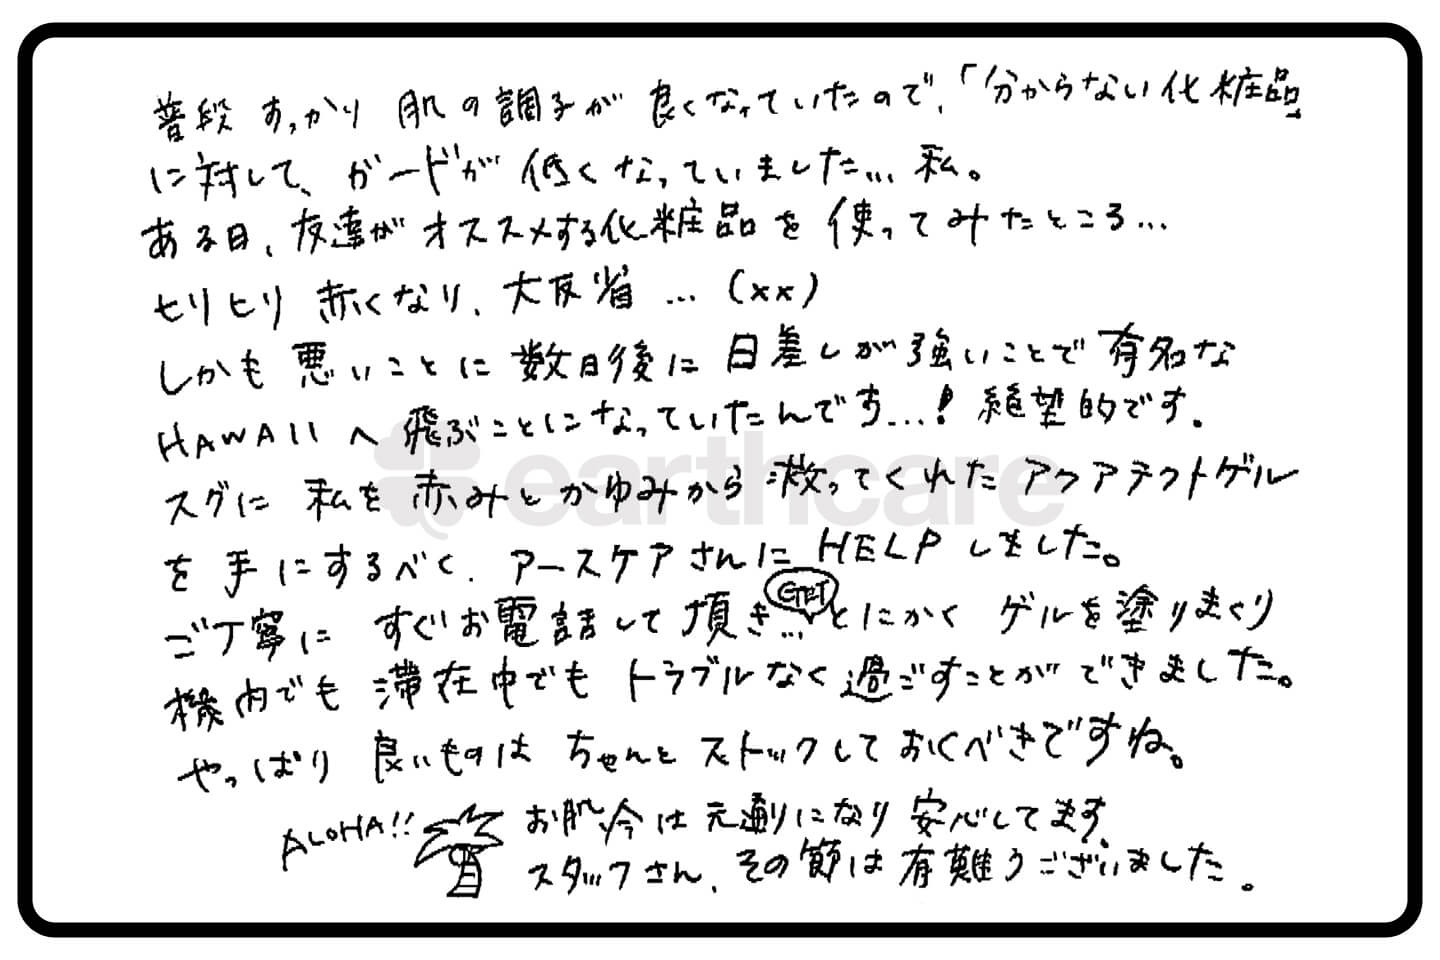 普段すっかり肌の調子が良くなっていたので、「分からない化粧品」
に対して、ガードが低くなっていました…私。
ある日、友達がオススメする化粧品を使ってみたところ…
ヒリヒリ赤くなり、大反省…(xx)
しかも悪いことに数日後に日差しが強いことで有名な
HAWAIIへ飛ぶことになっていたんです…!絶望的です。
スグに私を赤みとかゆみから救ってくれたアクアテクトゲル
earthcare
を手にするべく、アースケアさんにHELPしました。
GET
ご丁寧にすぐお電話して頂き…とにかくゲルを塗りまくり
機内でも滞在中でもトラブルなく過ごすことができました。
やっぱり良いものはちゃんとストックしておくべきですね。
ALOHA!! お肌、今は元通りになり安心してます。
スタッフさん、その節は有難うございました。